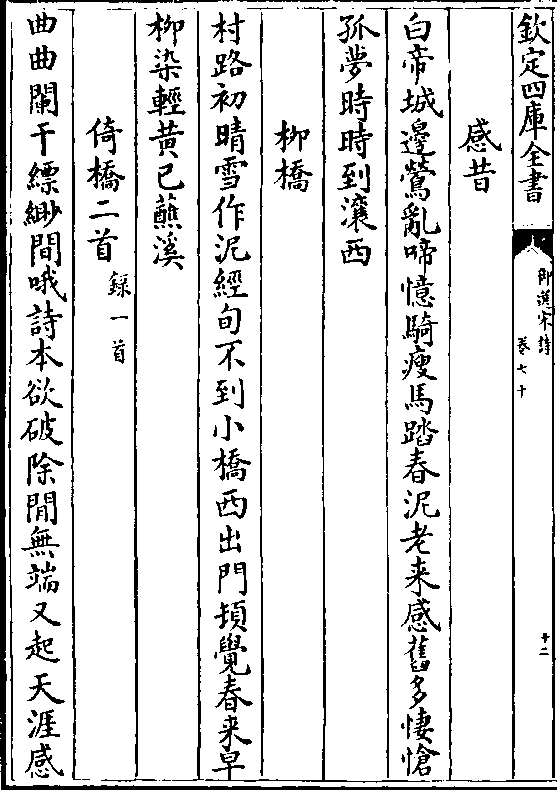 欽定四庫全書
御選宋詩
卷七十
十二
感昔
白帝城邊鶯亂啼憶騎瘦馬踏春泥老来感舊多悽愴
孤夢時時到瀼西
柳橋
村路初晴雪作泥經旬不到小橋西出門頓覺春来早
柳染輕黄已蘸溪
倚橋二首
錄一首
曲曲闌干縹緲間哦詩本欲破除閒無端又起天涯感